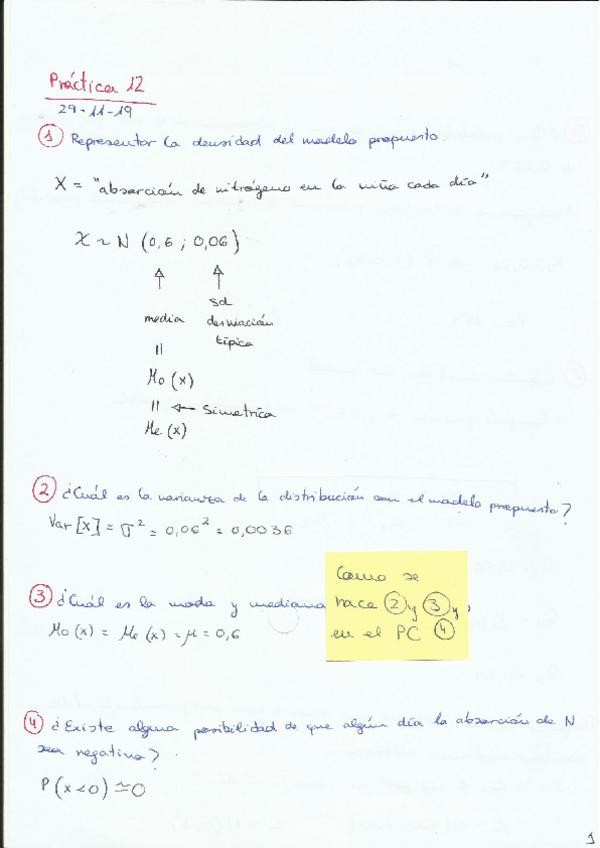 Práctica 12
29-11-19
1 Representar la densidad del modelo propuesto.
X = "absorción de nitrógeno en la niña cada día"
X ~ N (0,6 ; 0,06)
↑ ↑
media sd desviación típica
||
Mo (x)
|| ← simétrica
Me (x)
2 ¿Cuál es la varianza de la distribución con el modelo propuesto?
Var [X] = σ² = 0,06² = 0,0036
3 ¿Cuál es la moda y mediana
Mo (x) = Me (x) = μ = 0,6
Como se
hace 2 y 3 y,
en el PC 4
4 ¿Existe alguna posibilidad de que algún día la absorción de N
sea negativa?
P (x < 0) ≃ 0
1